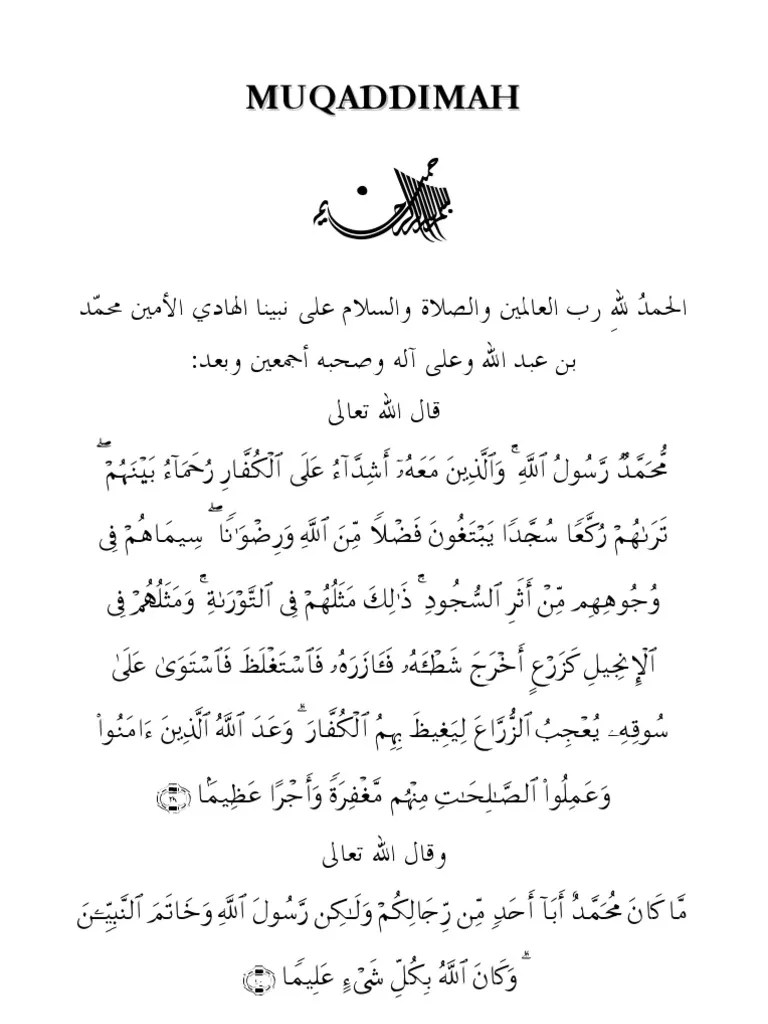 MUQADDIMAH
بسم الله الرحمن الرحيم
الحمدُ للهِ رب العالمين والصلاة والسلام على نبينا الهادي الأمين محمّد
بن عبد الله وعلى آله وصحبه أجمعين وبعد:
قال الله تعالى
مُّحَمَّدٌ رَّسُولُ ٱللَّهِ ۚ وَٱلَّذِينَ مَعَهُۥٓ أَشِدَّآءُ عَلَى ٱلْكُفَّارِ رُحَمَآءُ بَيْنَهُمْ ۖ
تَرَىٰهُمْ رُكَّعًا سُجَّدًا يَبْتَغُونَ فَضْلًا مِّنَ ٱللَّهِ وَرِضْوَٰنًا ۖ سِيمَاهُمْ فِى
وُجُوهِهِم مِّنْ أَثَرِ ٱلسُّجُودِ ۚ ذَٰلِكَ مَثَلُهُمْ فِى ٱلتَّوْرَىٰةِ ۚ وَمَثَلُهُمْ فِى
ٱلْإِنجِيلِ كَزَرْعٍ أَخْرَجَ شَطْـَٔهُۥ فَـَٔازَرَهُۥ فَٱسْتَغْلَظَ فَٱسْتَوَىٰ عَلَىٰ
سُوقِهِۦ يُعْجِبُ ٱلزُّرَّاعَ لِيَغِيظَ بِهِمُ ٱلْكُفَّارَ ۗ وَعَدَ ٱللَّهُ ٱلَّذِينَ ءَامَنُوا۟
وَعَمِلُوا۟ ٱلصَّـٰلِحَـٰتِ مِنْهُم مَّغْفِرَةً وَأَجْرًا عَظِيمًۢا ﴿٢٩﴾
وقال الله تعالى
مَّا كَانَ مُحَمَّدٌ أَبَآ أَحَدٍ مِّن رِّجَالِكُمْ وَلَـٰكِن رَّسُولَ ٱللَّهِ وَخَاتَمَ ٱلنَّبِيِّـۧنَ
ۗ وَكَانَ ٱللَّهُ بِكُلِّ شَىْءٍ عَلِيمًا ﴿٤٠﴾